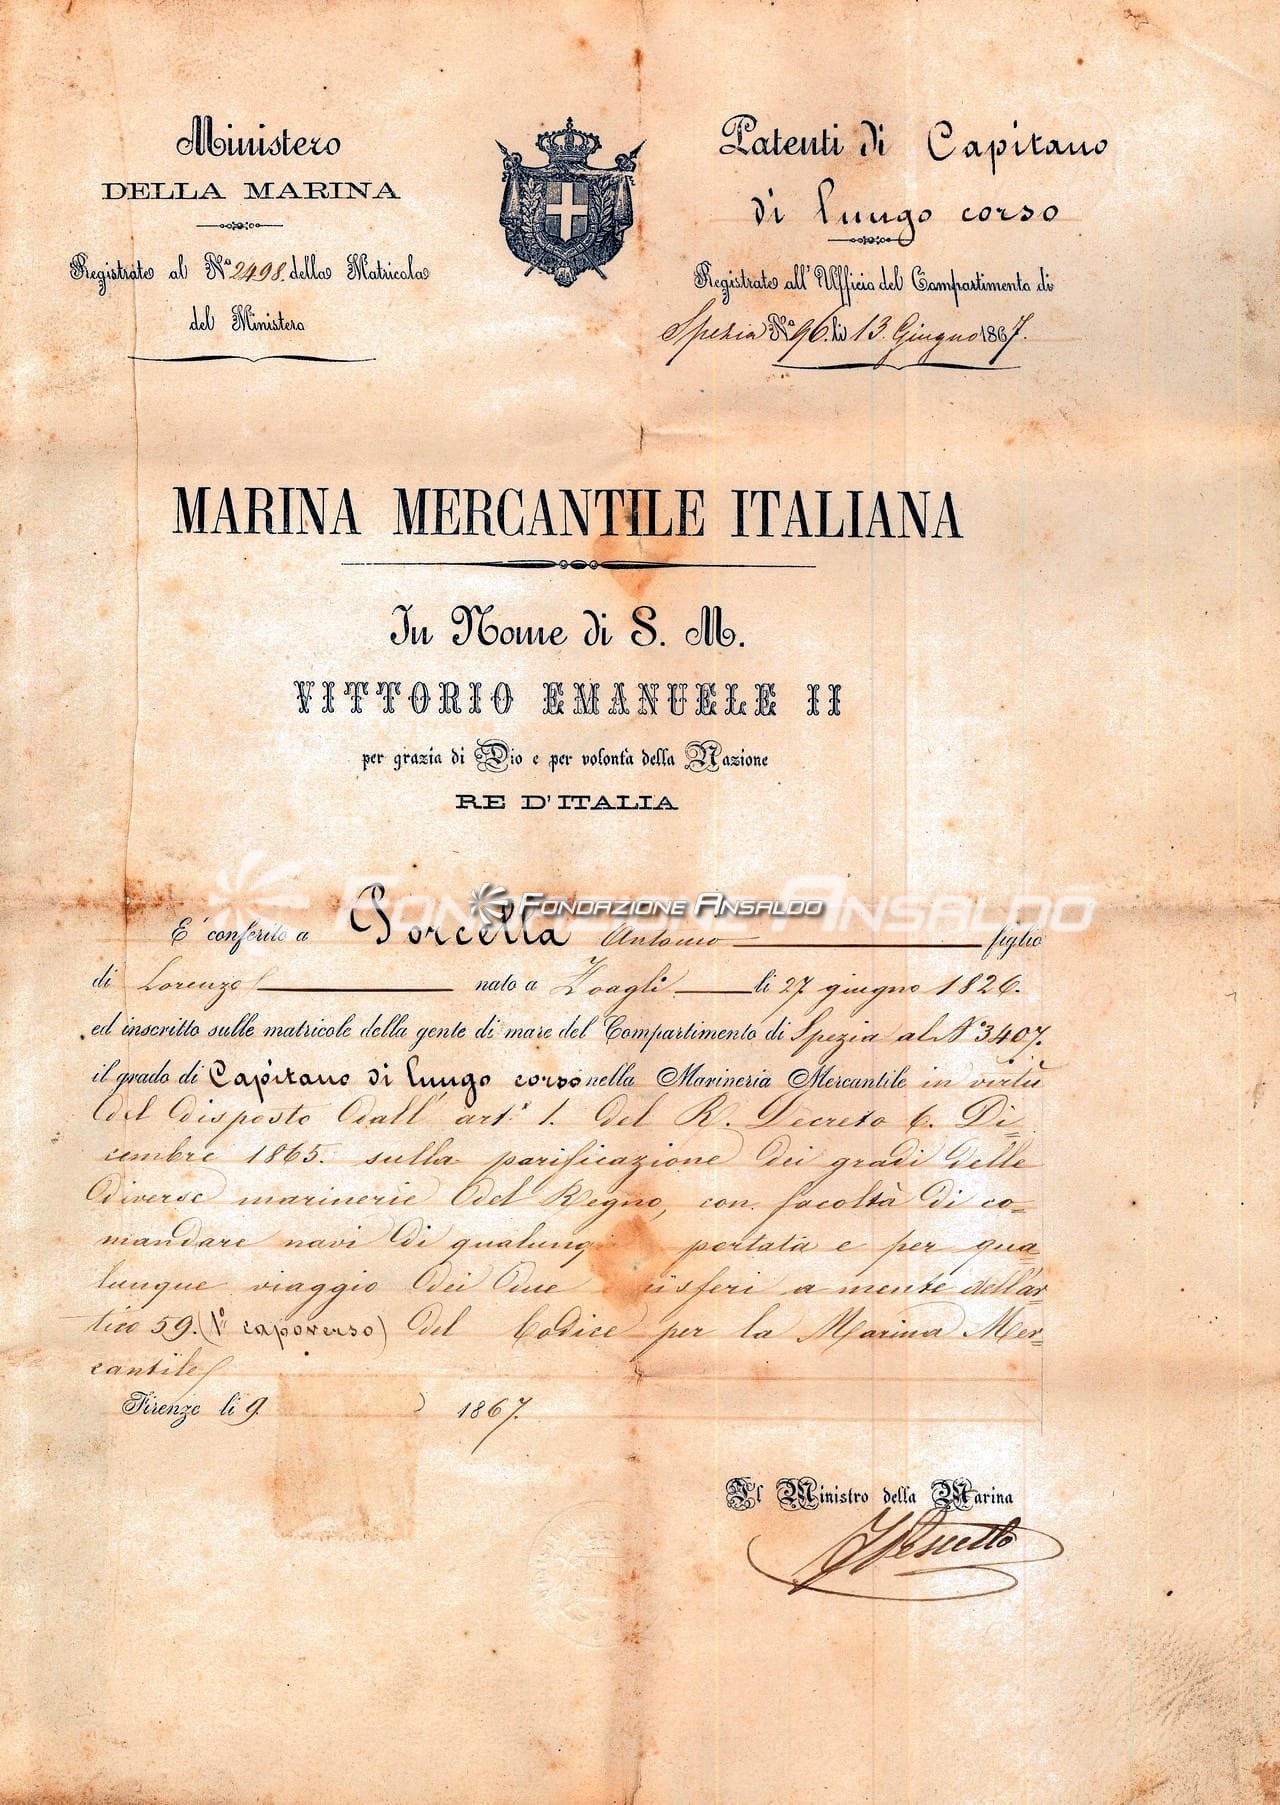 Ministero
DELLA MARINA
Registrate al N.º 2498. della Matricola
del Ministero
Patenti di Capitano
di lungo corso
Registrate all'Ufficio del Compartimento di
Spezia Nº 96. li 13. Giugno 1867.
MARINA MERCANTILE ITALIANA
In Nome di S. M.
VITTORIO EMANUELE II
per grazia di Dio e per volontà della Nazione
RE D'ITALIA
FONDAZIONE ANSALDO
FONDAZIONE ANSALDO
E' conferito a Porcella Antonio figlio
di Lorenzo nato a Zoagli li 27 giugno 1826.
ed inscritto sulle matricole della gente di mare del Compartimento di Spezia al Nº 3407.
il grado di Capitano di lungo corso nella Marineria Mercantile in virtù
del disposto dall' artº 1. del R. Decreto 6. Di=
cembre 1865. sulla parificazione dei gradi delle
diverse marinerie del Regno, con facoltà di co=
mandare navi di portata e per qua=
lunque viaggio dei due a mente dell'ar=
tico 59. (1º capoverso) del Codice per la Marina Mer=
cantile
Firenze li 9. 1867.
Il Ministro della Marina